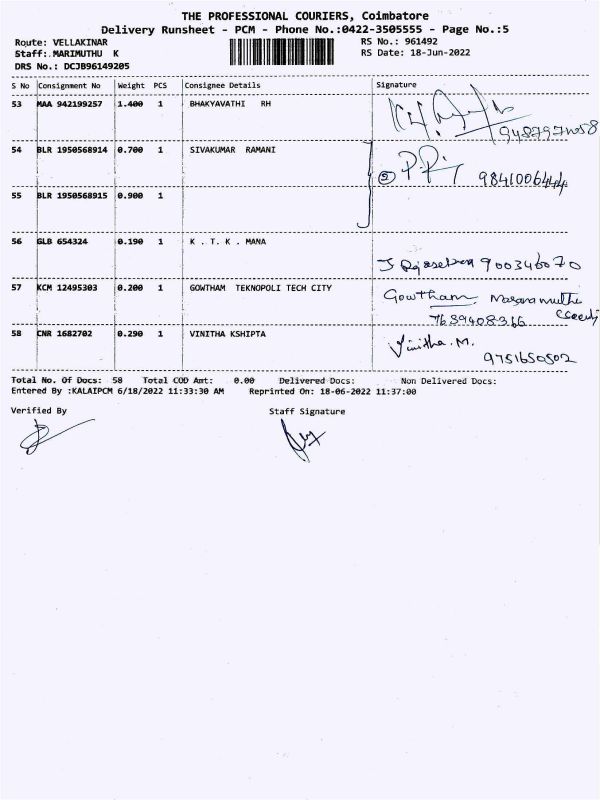 THE PROFESSIONAL COURIERS, Coimbatore
Delivery Runsheet - PCM - Phone No.:0422-3505555 - Page No.:5
Route: VELLAKINAR RS No.: 961492
Staff:.MARIMUTHU K RS Date: 18-Jun-2022
DRS No.: DCJB96149205
S No Consignment No Weight PCS Consignee Details Signature
53 MAA 942199257 1.400 1 BHAKYAVATHI RH
54 BLR 1950568914 0.700 1 SIVAKUMAR RAMANI
② 9841006444
55 BLR 1950568915 0.900 1
56 GLB 654324 0.190 1 K . T. K . MANA
900346070
57 KCM 12495303 0.200 1 GOWTHAM TEKNOPOLI TECH CITY Gowtham
7639408366
58 CNR 1682702 0.290 1 VINITHA KSHIPTA Vinitha. M.
9751650502
Total No. Of Docs: 58 Total COD Amt: 0.00 Delivered Docs: Non Delivered Docs:
Entered By :KALAIPCM 6/18/2022 11:33:30 AM Reprinted On: 18-06-2022 11:37:00
Verified By Staff Signature